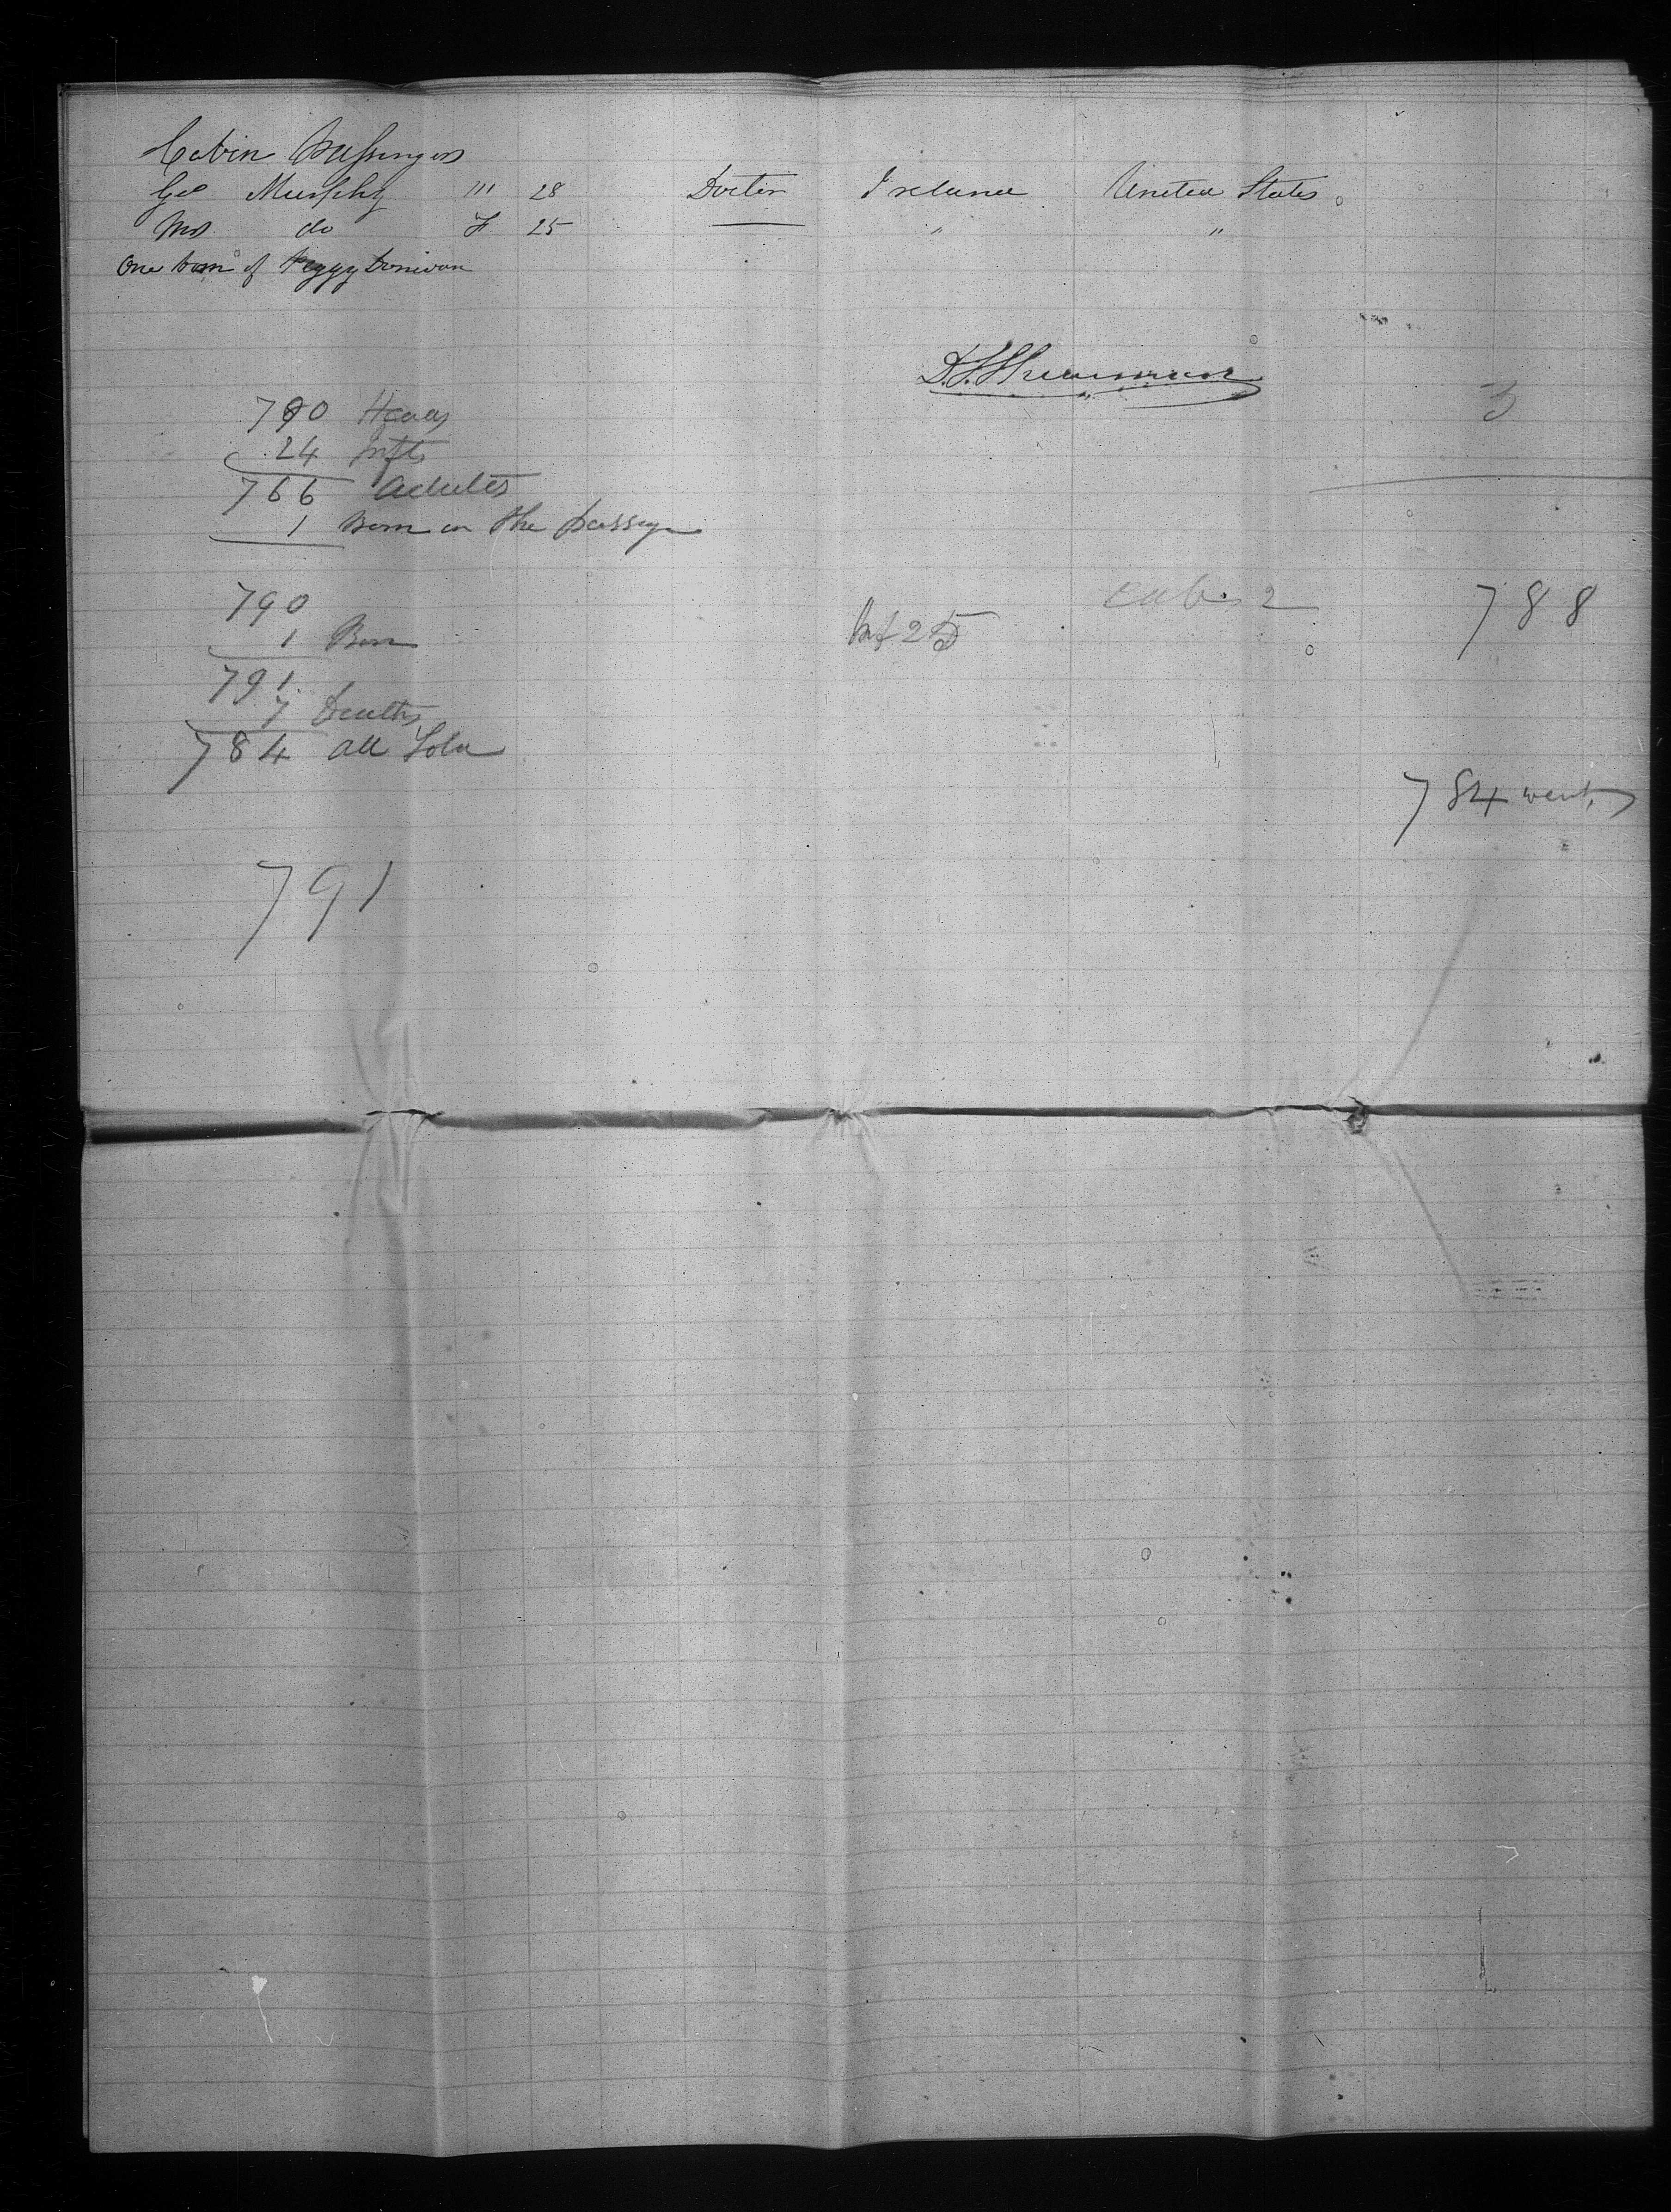 Cabin Passengers
Geo Murphy m 28 Docter Ireland United States
Mrs do F 25 — " "
One born of Peggy Donivan
3
790 Heads
24 Infts
766 Adults
1 Born on the passage
790
1 Born
791
7 Deaths
784 all Told
Inf 25
cab. 2
788
784 went
791